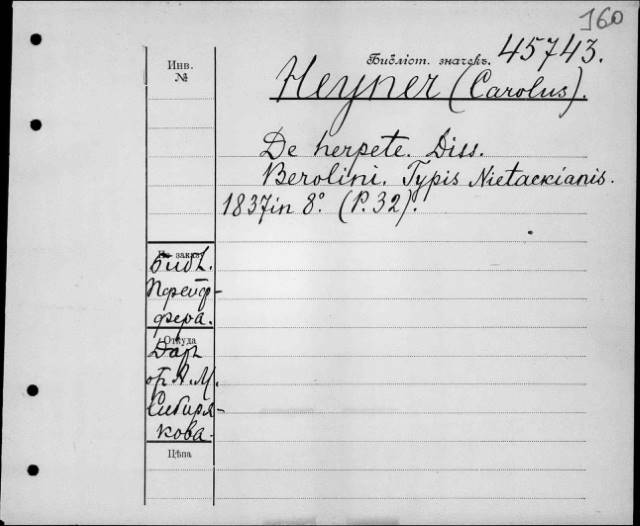 160
Инв.
№
Библіот. значекъ. 45743.
Heyner (Carolus).
De herpete. Diss.
Berolini. Typis Nietackianis.
1837 in 8º. (P. 32).
По заказу
Библ.
Пфейф-
фера.
Откуда
Даръ
от А. М.
Сибиря-
кова.
Цѣна